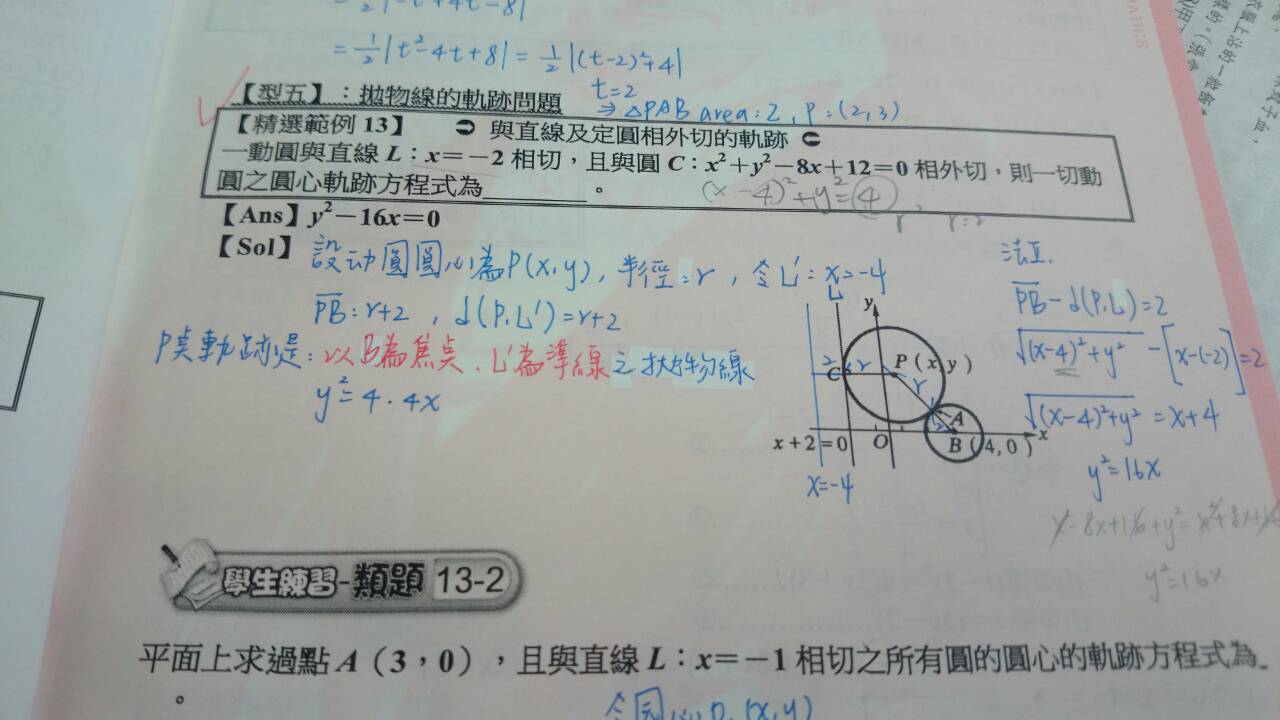 = 1/2|-t²+4t-8|
= 1/2|t²-4t+8| = 1/2|(t-2)²+4|
t=2
⇒ △PAB area: 2, P=(2,3)
【型五】:拋物線的軌跡問題
【精選範例 13】 ➲ 與直線及定圓相外切的軌跡
一動圓與直線 L:x=-2 相切,且與圓 C:x²+y²-8x+12=0 相外切,則一切動
圓之圓心軌跡方程式為________。
(x-4)²+y²=4
r² r=2
【Ans】y²-16x=0
【Sol】設动圓圓心為P(x,y), 半徑=r, 令L': x=-4
PB: r+2, d(P,L')=r+2
P其軌跡是: 以B為焦点、L'為準線之拋物線
y²=4·4x
L
y
2
C
r
P(x,y)
r
A
2
x+2=0
O
B(4,0)
x
x=-4
法II.
PB-d(P,L)=2
√(x-4)²+y² -[x-(-2)]=2
√(x-4)²+y² = x+4
y²=16x
x²-8x+16+y²=x²+8x+16
y²=16x
學生練習-類題 13-2
平面上求過點 A(3,0),且與直線 L:x=-1 相切之所有圓的圓心的軌跡方程式為
。